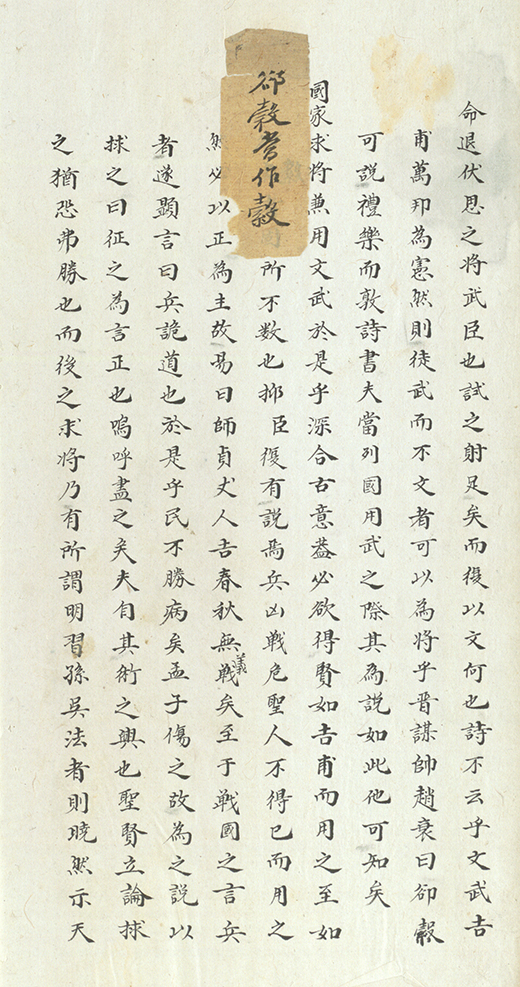 命退伏思之将武臣也試之射足矣而復以文何也詩不云乎文武吉
甫萬邦為憲然則徒武而不文者可以為將乎晋謀帥趙衰曰郤縠
可說禮樂而敦詩書夫當列國用武之際其為說如此他可知矣
國家求将兼用文武於是乎深合古意葢必欲得賢如吉甫而用之至如
郤縠當作縠
所不数也抑臣復有說焉兵凶戦危聖人不得已而用之
然必以正為主故易曰師貞丈人吉春秋無義戦矣至于戦國之言兵
者遂顕言曰兵詭道也於是乎民不勝病矣孟子傷之故為之說以
捄之曰征之為言正也嗚呼盡之矣夫自其術之興也聖賢立論捄
之猶恐弗勝也而後之求將乃有所謂明習孫吳法者則曉然示天